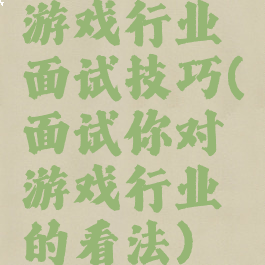 游戏行业
面试技巧(
面试你对
游戏行业
的看法)